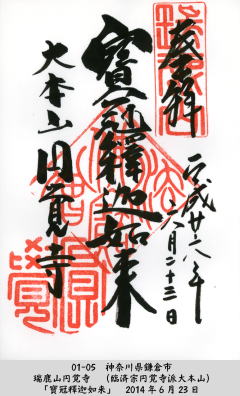 奉拝
平成廿六年
六月二十三日
寳冠釋迦如来
大本山円覚寺
01-05 神奈川県鎌倉市
瑞鹿山円覚寺 (臨済宗円覚寺派大本山)
「寶冠釈迦如来」 2014年6月23日